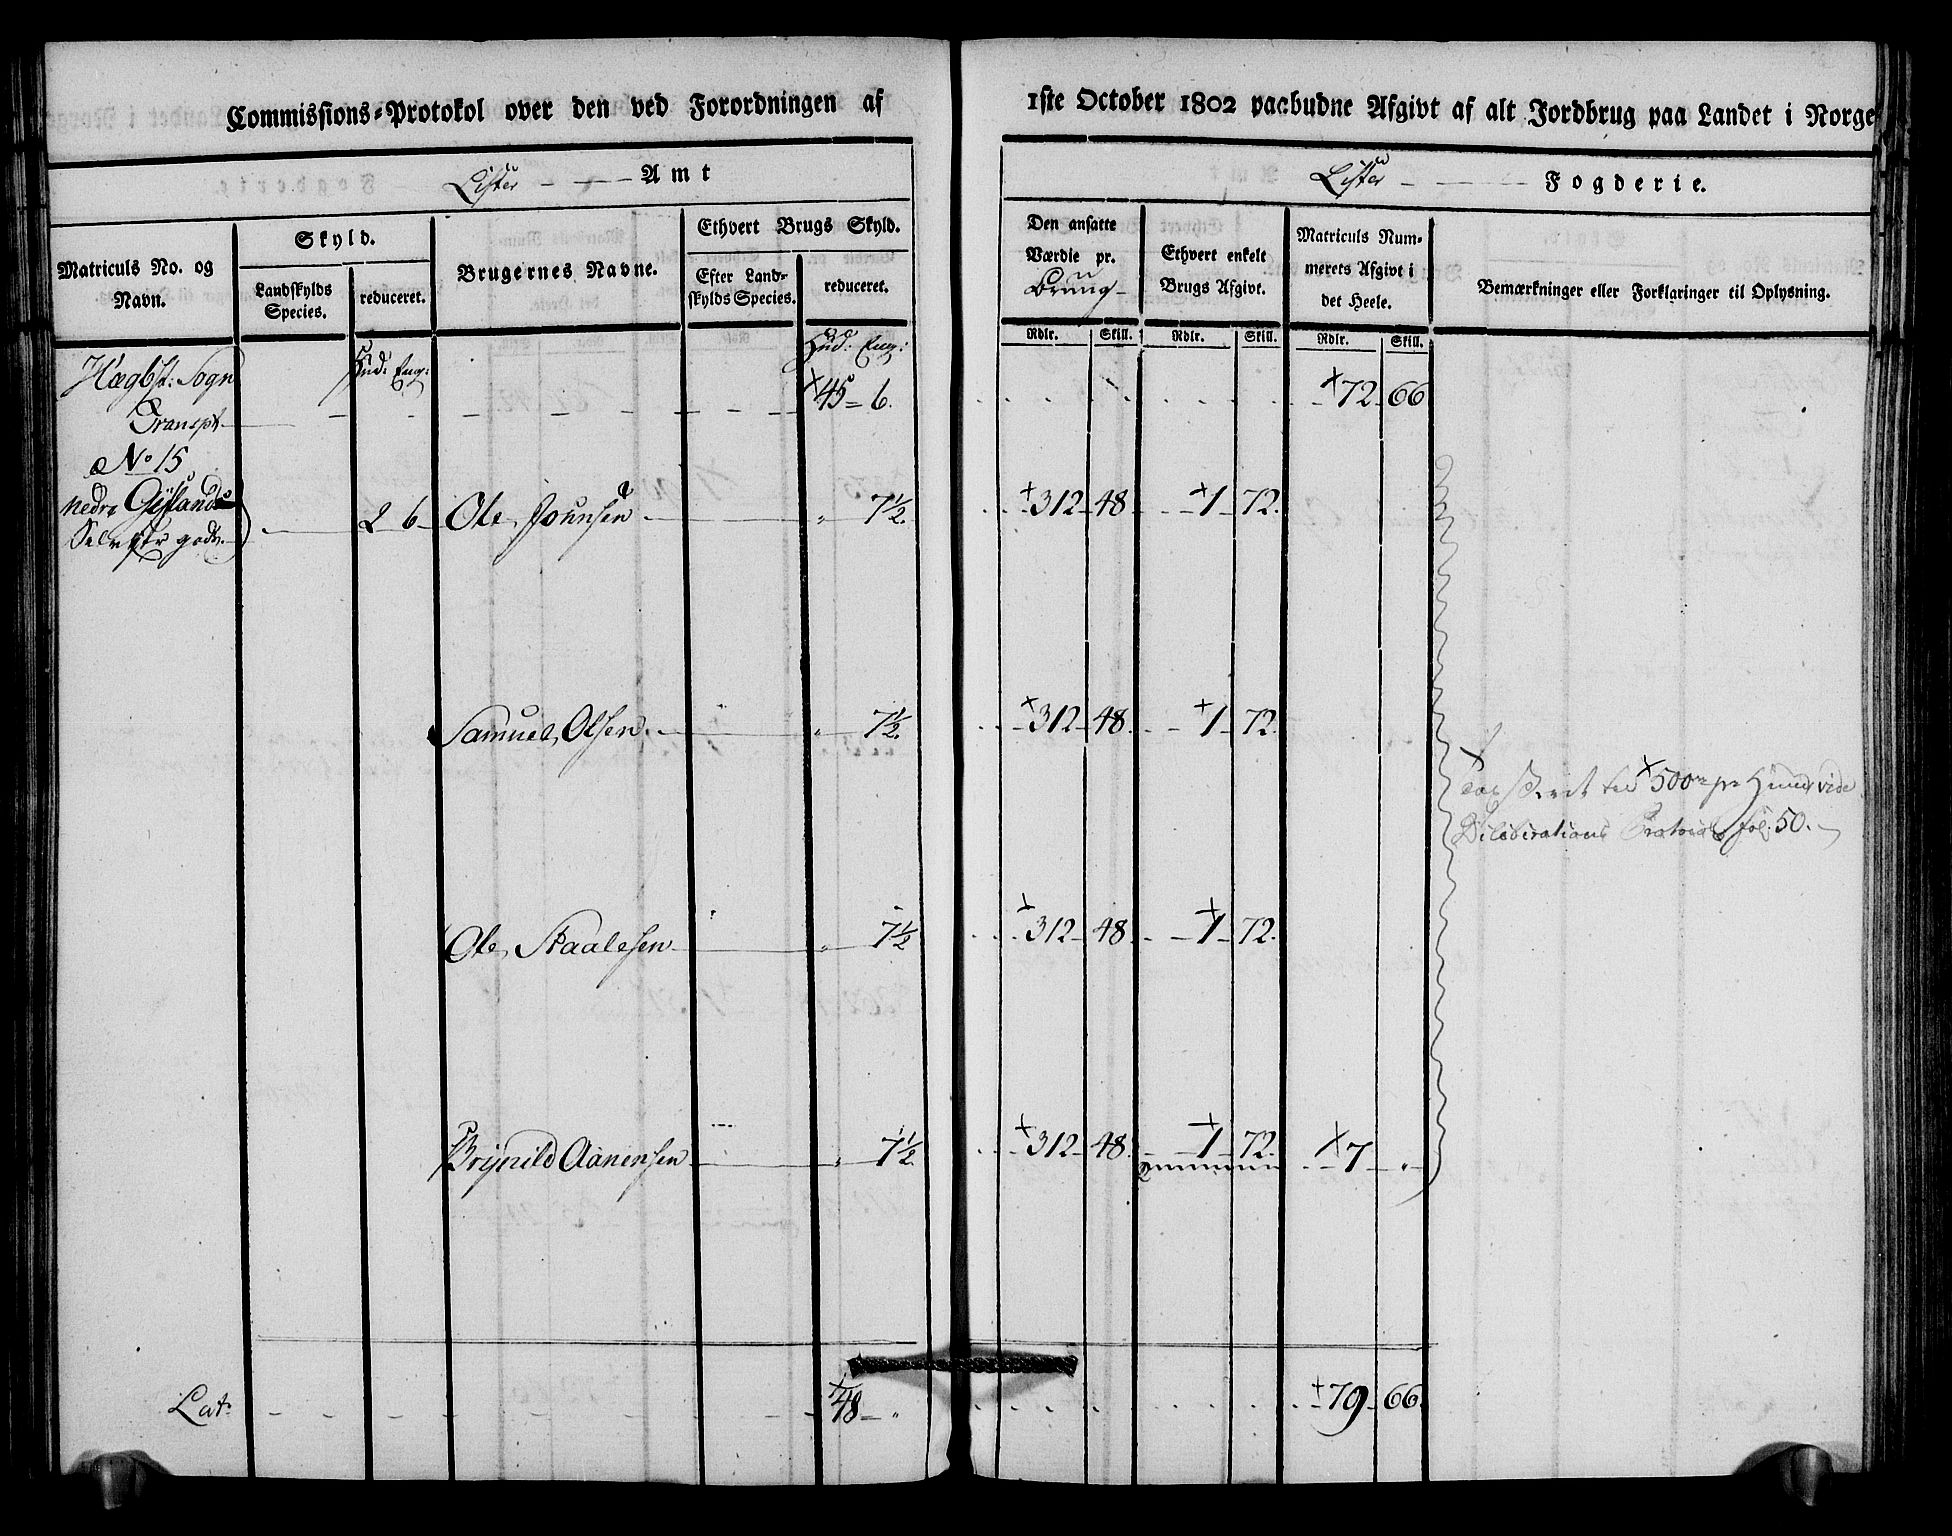 Commissions-Protokol over den ved Forordningen af 1ste October 1802 paabudne Afgivt af alt Jordbrug paa Landet i Norge
Lister Amt
Lister Fogderie.
Matriculs No. og Navn.
Skyld.
Landskylds Species.
reduceret.
Brugernes Navne.
Ethvert Brugs Skyld.
Efter Landskylds Species.
reduceret.
Den ansatte Værdie pr. Brug
Ethvert enkelt Brugs Afgivt.
Matriculs Nummerets Afgivt i det Heele.
Bemærkninger eller Forklaringer til Oplysning.
Rdlr. Skill. Rdlr. Skill. Rdlr. Skill.
Hud: Eng: Hud: Eng:
Hægbst: Sogn
Transpt 45 6. 72 66
No 15
nedre Gysland 2 6 Ole Johnsen " 7½. 312 48 1 72.
Selvejer gods
Samuel Olsen. " 7½. 312 48. 1 72
500 pr Hund vide
Deliberations Protocol fol: 50.
Ole Staalesen " 7½ 312 48. 1 72.
Brynild Aanensen " 7½ 312 48. 1 72. 7 "
Lat. 48 " 79 66.